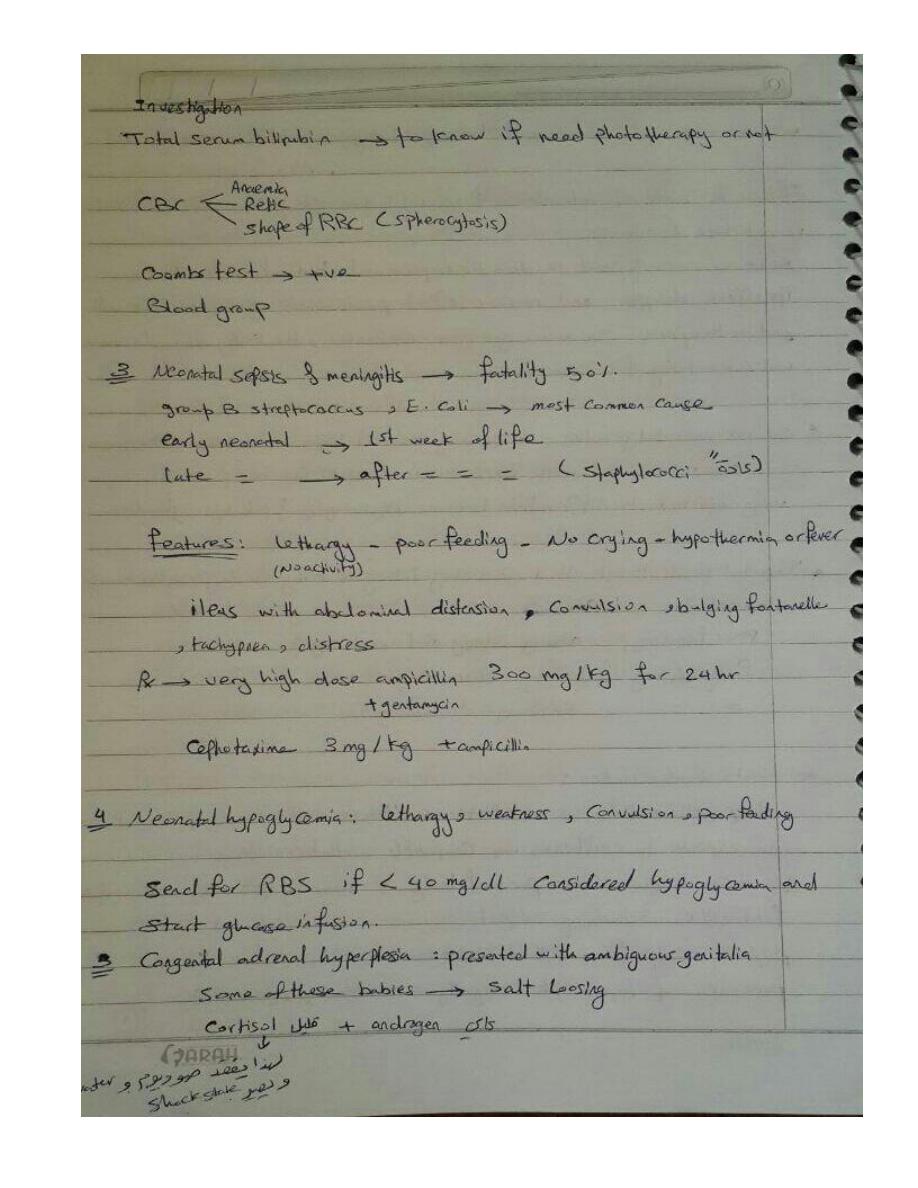 Investigation
Total serum bilirubin → to know if need phototherapy or not
Anaemia
CBC Retic
shape of RBC (spherocytosis)
Coombs test → +ve
Blood group
3 Neonatal sepsis & meningitis → fatality 50%.
group B streptococcus, E. Coli → most common cause
early neonatal → 1st week of life
late = → after = = = (staphylococci "عادة")
features: lethargy - poor feeding - No crying - hypothermia or fever
(No activity)
ileus with abdominal distension, Convulsion, bulging fontanelle
, tachypnea, distress
Rx → very high dose ampicillin 300 mg/kg for 24 hr
+ gentamycin
Cephotaxime 3 mg/kg + ampicillin
4 Neonatal hypoglycemia: lethargy, weakness, Convulsion, poor feeding
Send for RBS if < 40 mg/dl Considered hypoglycemia and
start glucose infusion.
Congenital adrenal hyperplesia : presented with ambiguous genitalia
Some of these babies → Salt Loosing
Cortisol قليل + androgen عالي
FARAH
لهذا يفقد صوديوم و water
و يصير Shock state